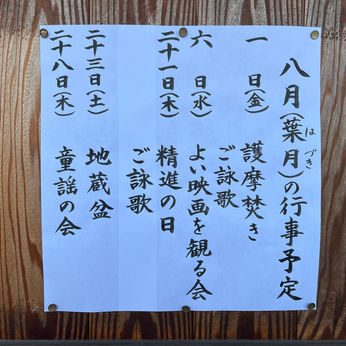 八月(葉月)の行事予定
はづき
一日(金) 護摩焚き
ご詠歌
六日(水) よい映画を観る会
二十一日(木) 精進の日
ご詠歌
二十三日(土) 地蔵盆
二十八日(木) 童謡の会